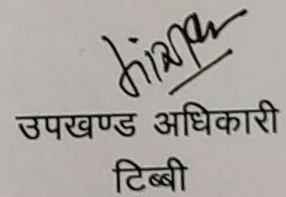 उपखण्ड अधिकारी
टिब्बी